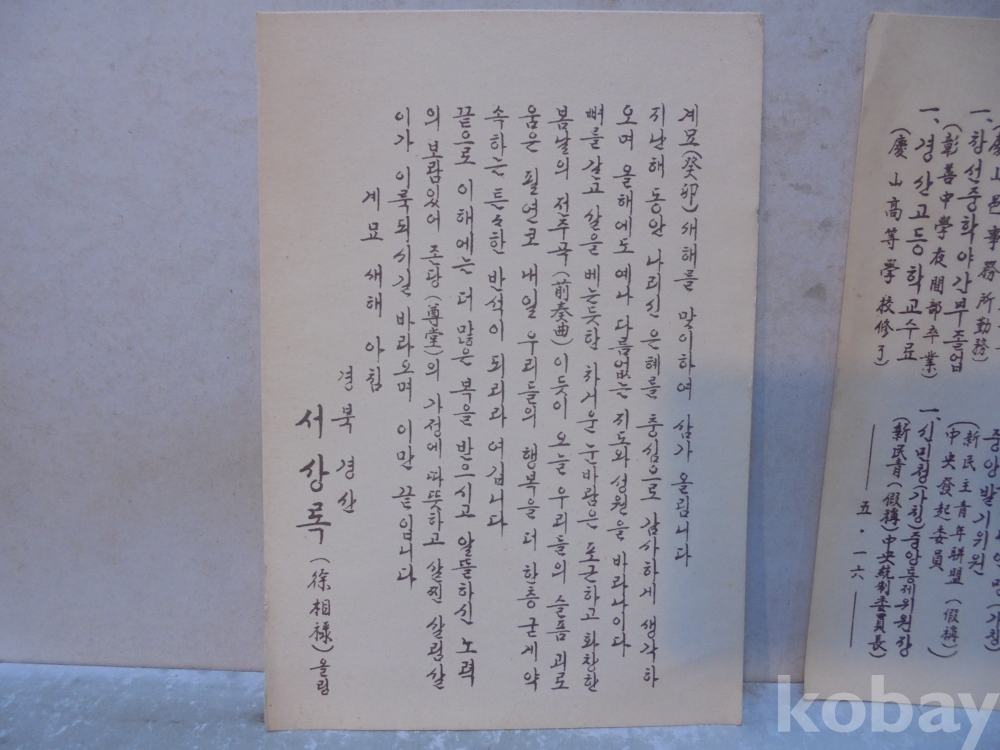 계묘(癸卯)새해를 맞이하여 삼가 올립니다
지난해 동안 나리신 은혜를 충심으로 감사하게 생각하
오며 올해에도 예나 다름없는 지도와 성원을 바라나이다
뼈를 갈고 살을 베는듯한 차거운 눈바람은 포근하고 화창한
봄날의 전주곡(前奏曲)이듯이 오늘 우리들의 슬픔 괴로
움은 필연코 내일 우리들의 행복을 더 한층 굳게 약
속하는 튼々한 반석이 되리라 여깁니다
끝으로 이해에는 더 많은 복을 받으시고 알뜰하신 노력
의 보람있어 존당(尊堂)의 가정에 따뜻하고 살찐 살림살
이가 이룩되시길 바라오며 이만 끝입니다
계묘 새해 아침
경북 경산
서상록 (徐相祿) 올림
慶山邑事務所勤務)
一、창선중학야간부졸업
(彰善中學夜間部卒業)
一、경산고등학교수료
(慶山高等學校修了)
중앙발기위원
(新民主青年聯盟(假稱)
中央發起委員)
一、신민청(가칭)중앙통제위원장
(新民青(假稱)中央統制委員長)
— 五·一六 —
kobay